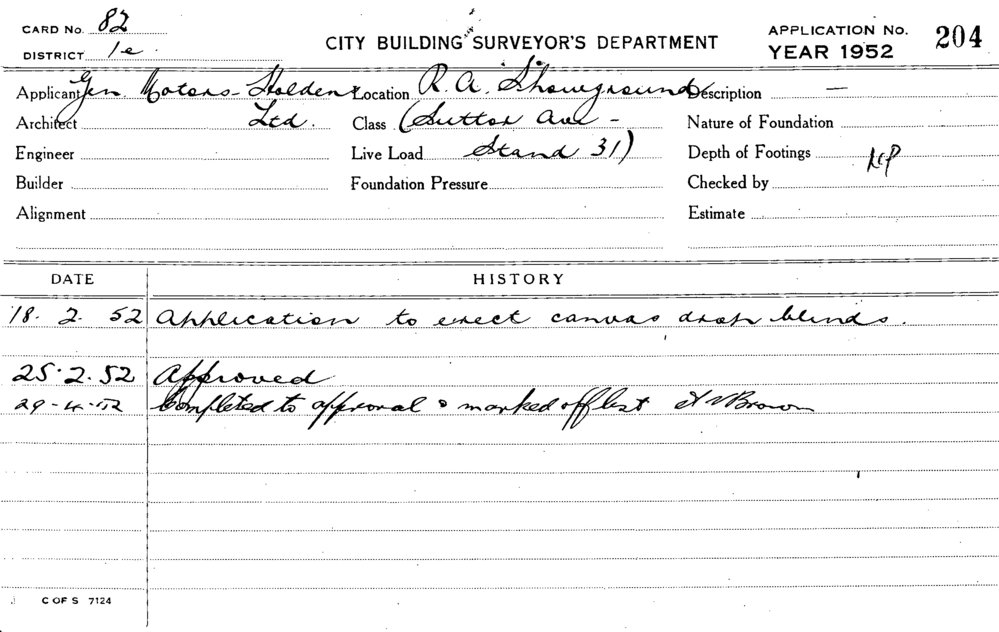 CARD No. 82
DISTRICT 1e
CITY BUILDING SURVEYOR'S DEPARTMENT
APPLICATION No. 204
YEAR 1952
Applicant Gen. Motors-Holdens Location R. A. Showground Description —
Architect Ltd. Class (Sutton Ave - Nature of Foundation
Engineer Live Load Stand 31) Depth of Footings
Builder Foundation Pressure Checked by
Alignment Estimate
DATE HISTORY
18. 2. 52 Application to erect canvas drop blinds.
25.2.52 Approved
29-4-52 Completed to approval & marked off list Brown
C OF S 7124